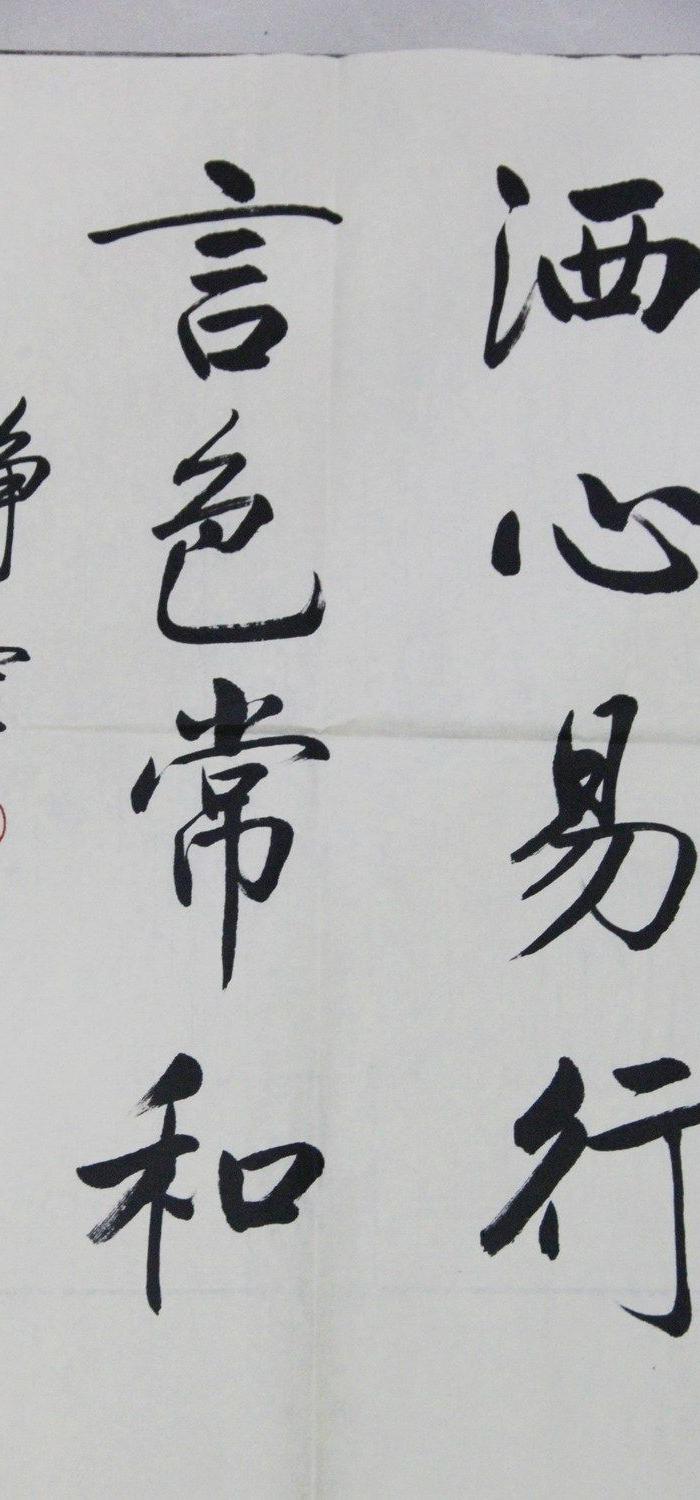 洒心易行
言色常和